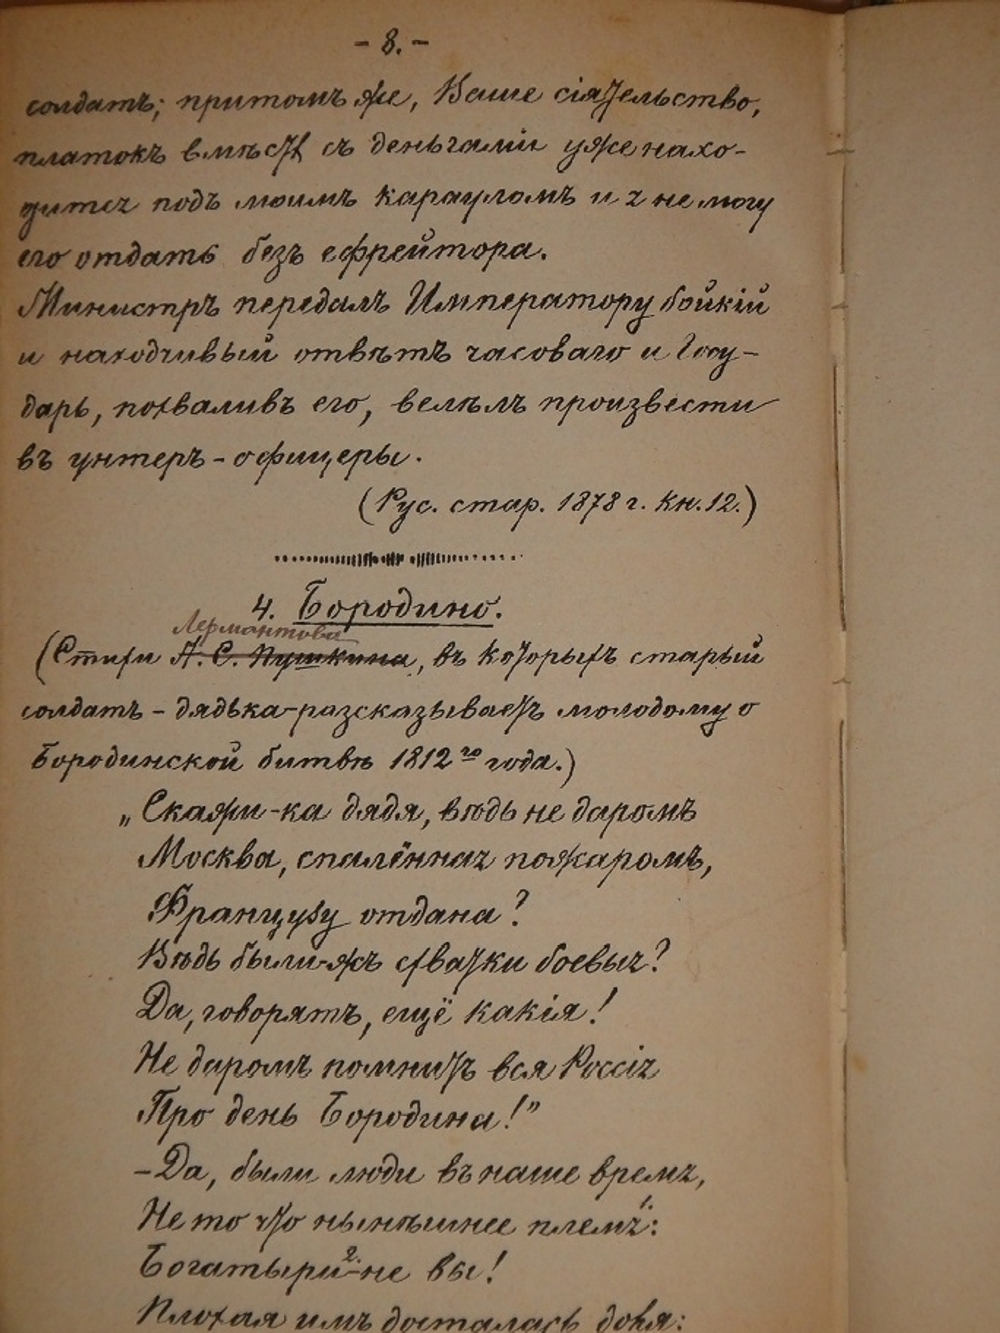 - 8. -
солдатъ; притомъ же, Ваше сіятельство,
платокъ вмѣстѣ съ деньгами уже нахо-
дится подъ моимъ карауломъ и я не могу
его отдать безъ ефрейтора.
Министръ передалъ Императору бойкій
и находчивый отвѣтъ часоваго и Госу-
дарь, похваливъ его, велѣлъ произвести
въ унтеръ-офицеры.
(Рус. стар. 1878 г. кн. 12.)
4. Бородино.
Лермантова
(Стихи А. С. Пушкина, въ которыхъ старый
солдатъ - дядька - разсказываетъ молодому о
Бородинской битвѣ 1812го года.)
„Скажи-ка дядя, вѣдь не даромъ
Москва, спалённая пожаромъ,
Французу отдана?
Вѣдь были-жъ схватки боевыя?
Да, говорятъ, ещё какія!
Не даромъ помнитъ вся Россія
Про день Бородина!"
- Да, были люди въ наше время,
Не то что нынѣшнее племя1.:
Богатыри2. - не вы!
Плохая имъ досталась доля: